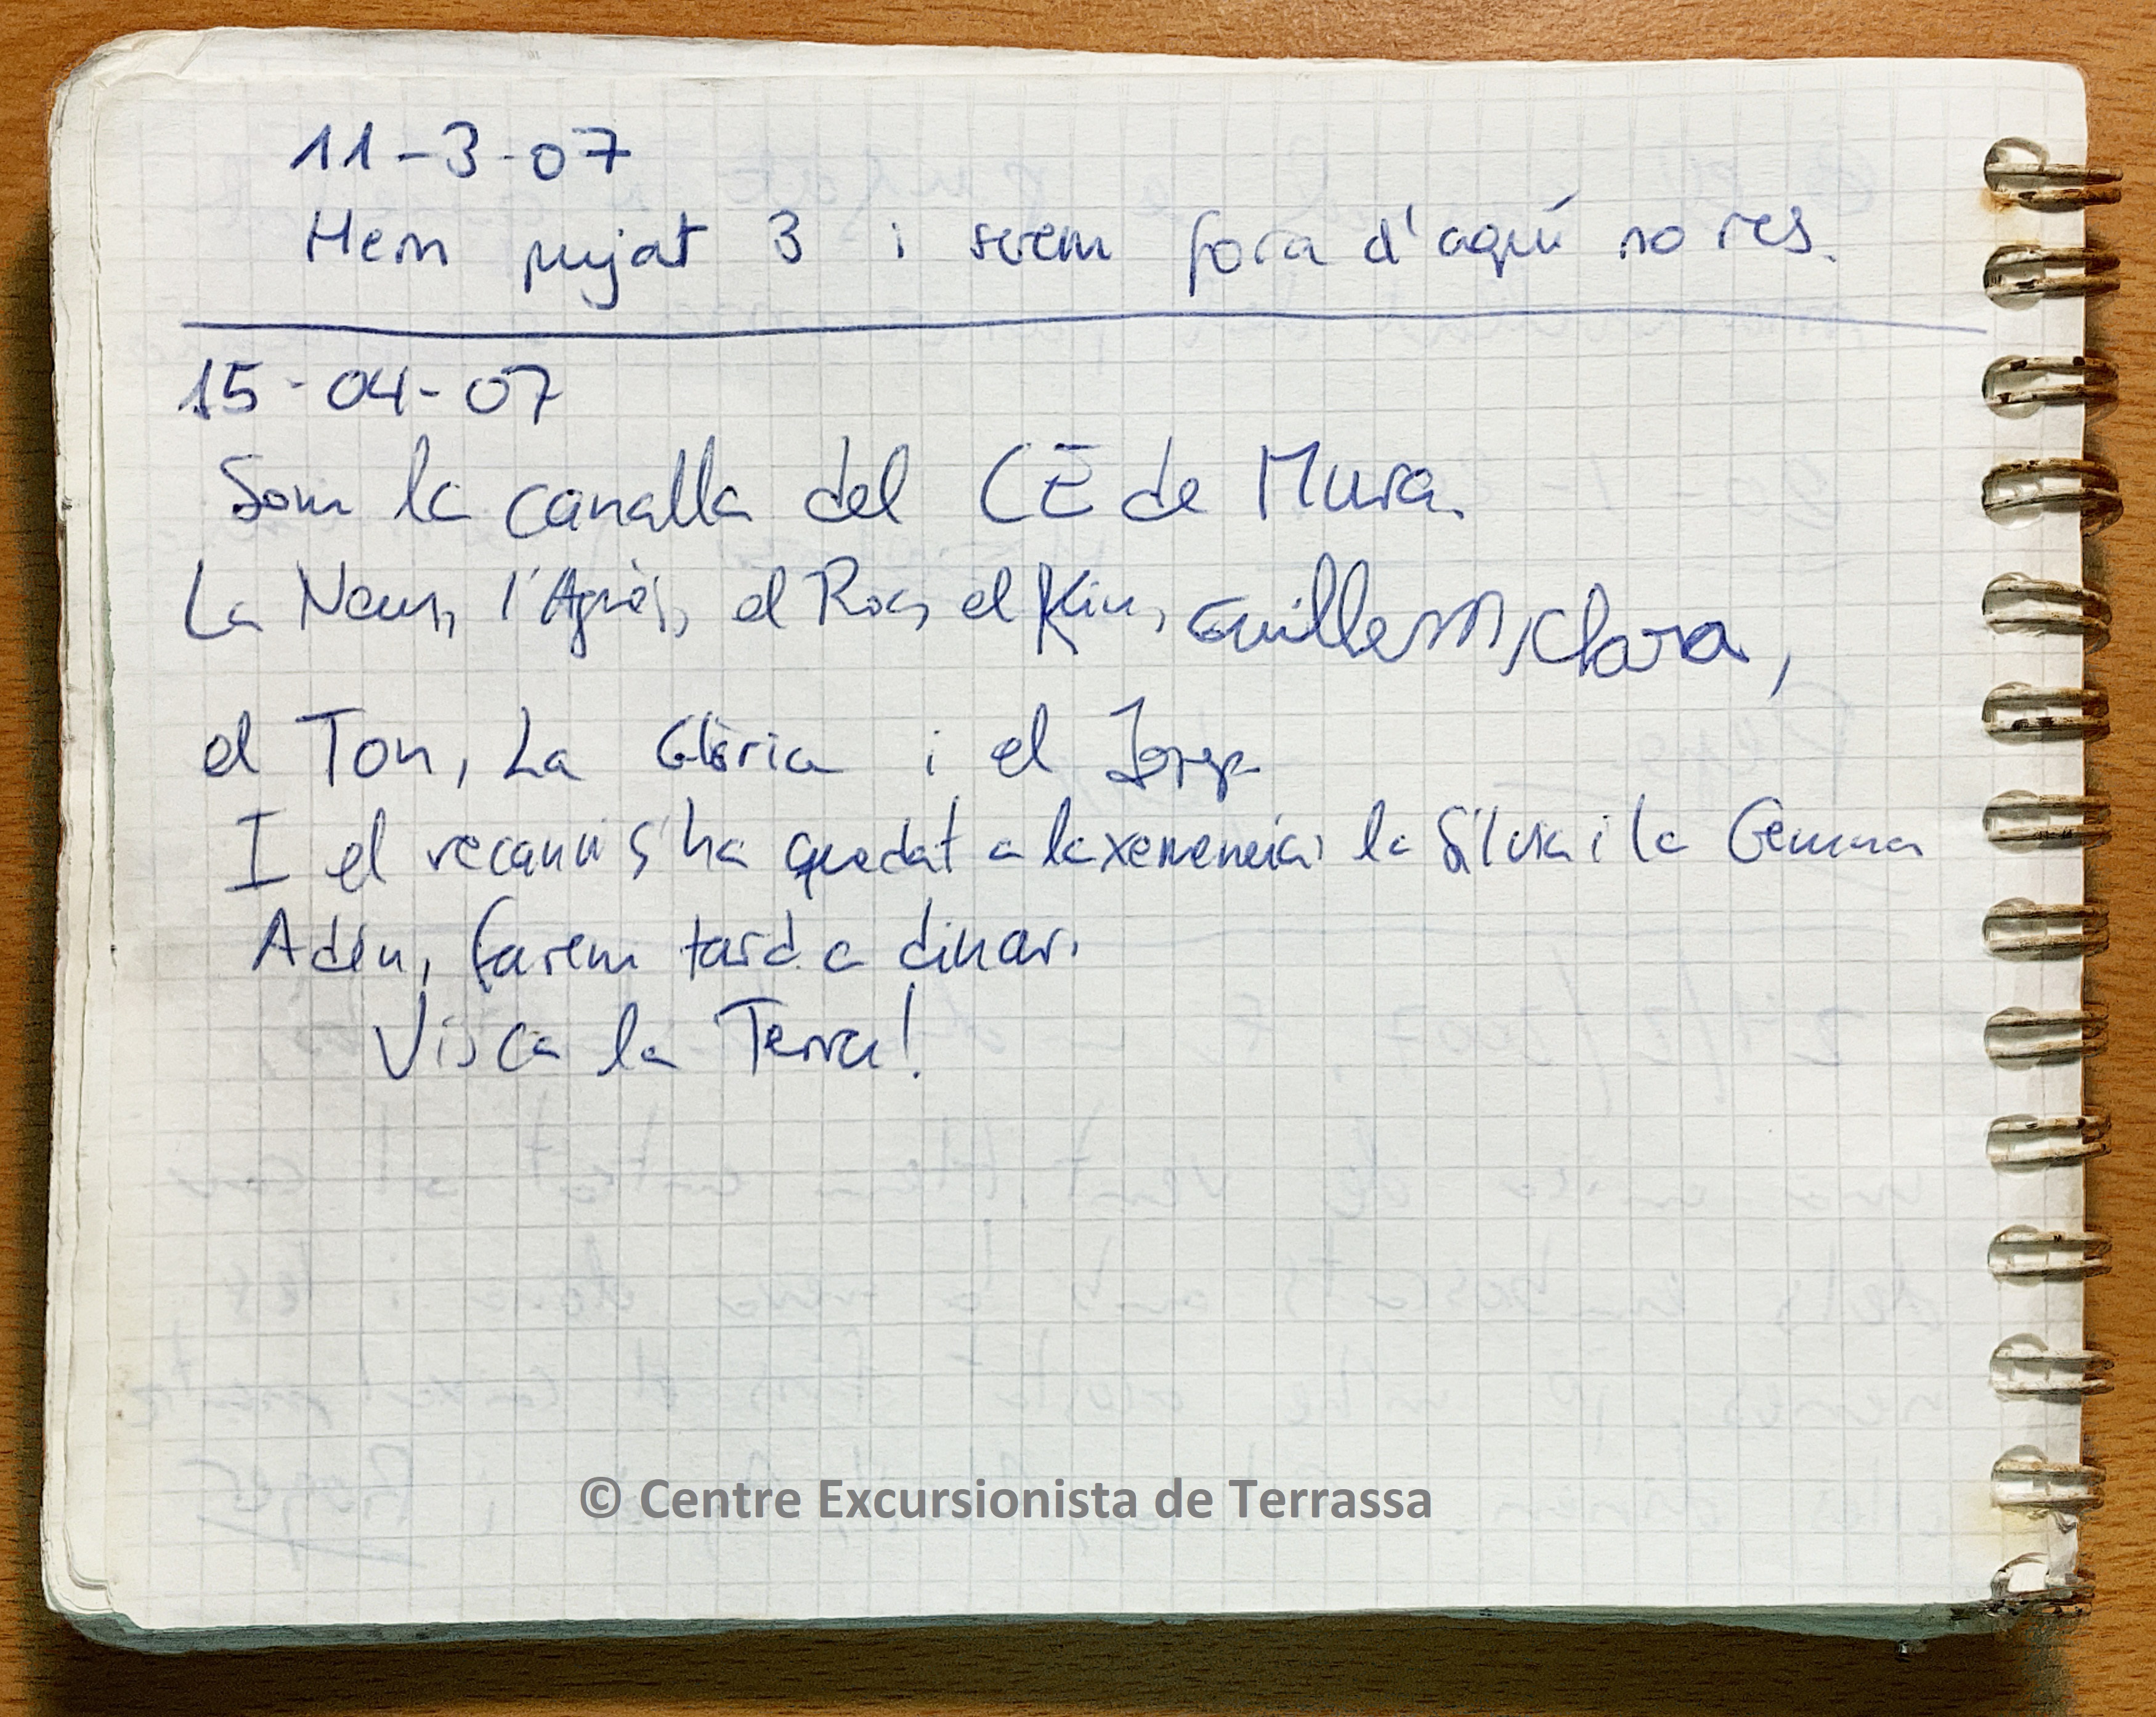 11-3-07
Hem pujat 3 i serem fora d'aquí no res.
15-04-07
Som la canalla del CE de Mura.
La Neus, l'Agnès, el Roc, el Kim, Guillem, Clara,
el Ton, La Glòria i el Josep
I el recanvi s'ha quedat a la xemeneia: la Sílvia i la Gemma
Adéu, farem tard a dinar.
Visca la Terra!
© Centre Excursionista de Terrassa